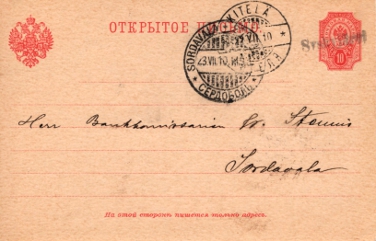 ОТКРЫТОЕ ПИСЬМО.
KITELÄ
SORDAVALA
23.VII.10
СЕРДОБОЛЬ
10
Herr Bankkommissarien W. Stenius
Sordavala
На этой сторонѣ пишется только адресъ.